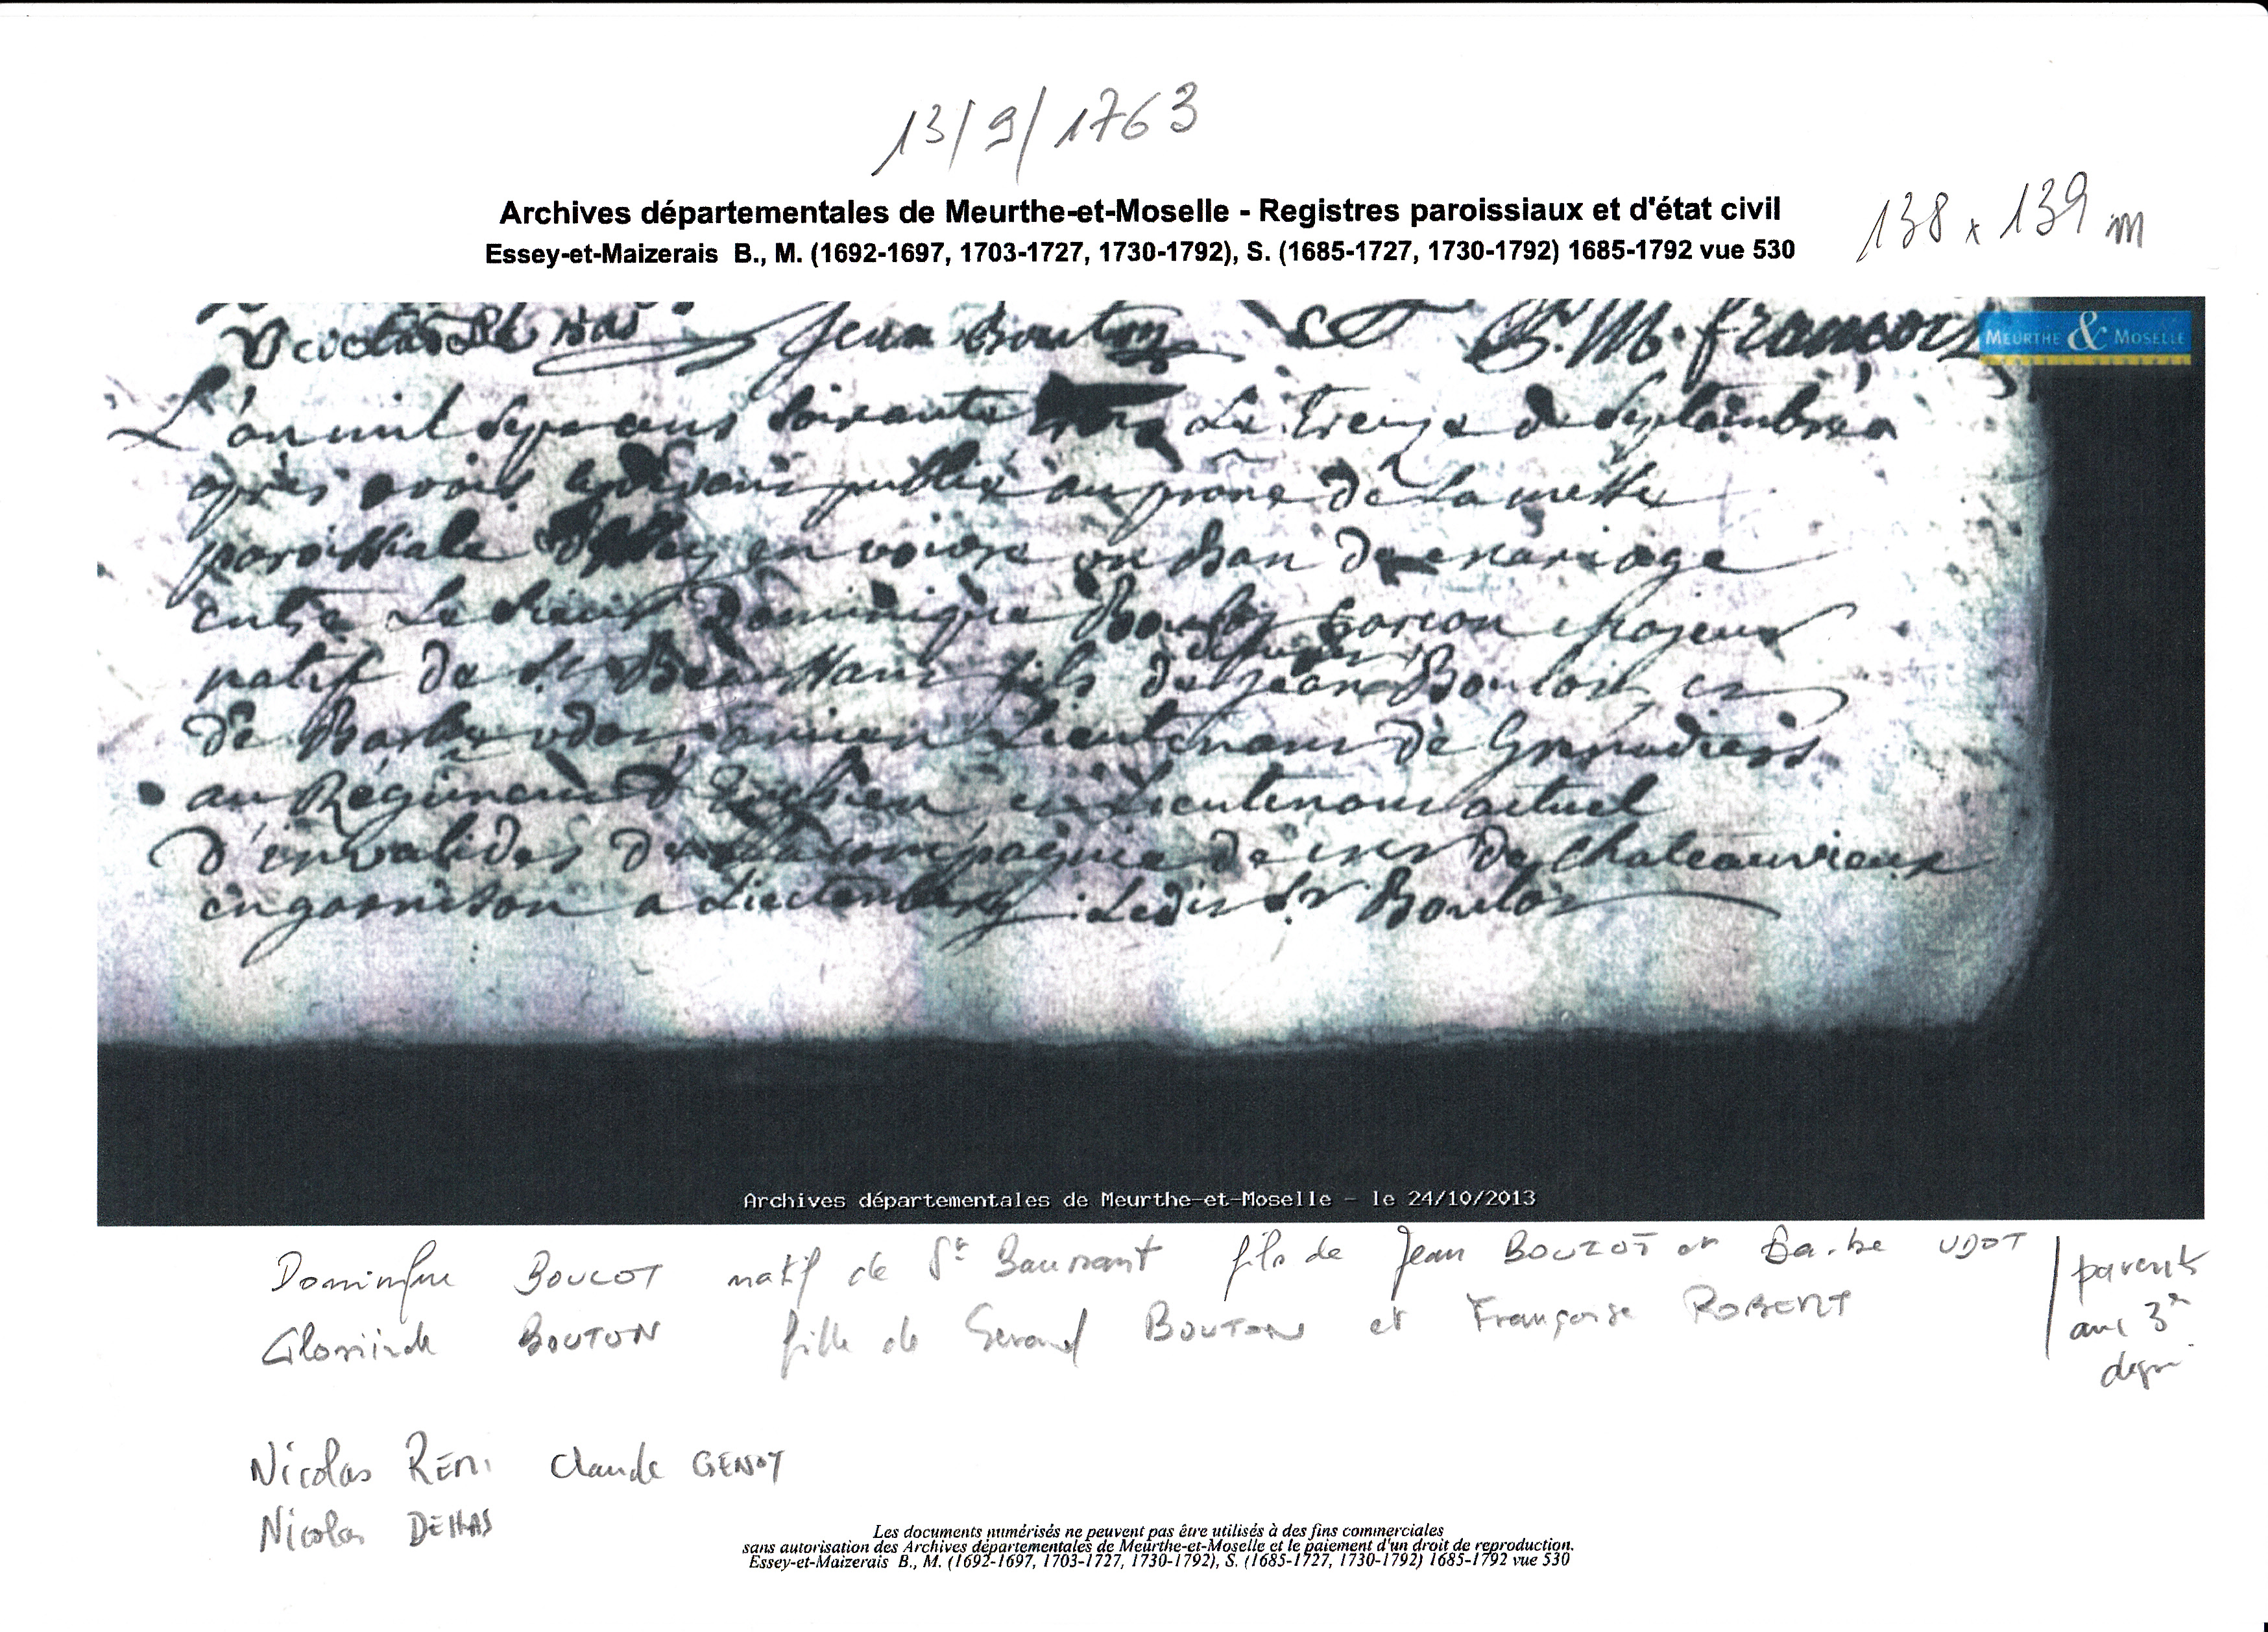 13/9/1763
Archives départementales de Meurthe-et-Moselle - Registres paroissiaux et d'état civil
138 x 139 m
Essey-et-Maizerais B., M. (1692-1697, 1703-1727, 1730-1792), S. (1685-1727, 1730-1792) 1685-1792 vue 530
Jean Bouton F. M. francois
MEURTHE & MOSELLE
L'an mil sept cens soixante trois Le treize de Septembre
après avoir publié au prône de La messe
paroissiale d'Essey en voivre un Ban de mariage
entre Le Sieur Dominique Boulot Garcon Majeur
natif de St Beaussant fils de defunt Jean Boulot et
de Barbe udot, ancien Lieutenant de Grenadiers
au Régiment et Lieutenant actuel
d'invalides de la compagnie de mr de Chateauvieux
en garnison a Lictenberg. Ledit Sr Boulot
Archives départementales de Meurthe-et-Moselle - le 24/10/2013
Dominique BOULOT natif de St Baussant fils de Jean BOULOT et Barbe UDOT
Glossinde BOUTON fille de Gerard BOUTON et Françoise ROBERT
parents
au 3e
degré
Nicolas REMI Claude GENOT
Nicolas DEHAS
Les documents numérisés ne peuvent pas être utilisés à des fins commerciales
sans autorisation des Archives départementales de Meurthe-et-Moselle et le paiement d'un droit de reproduction.
Essey-et-Maizerais B., M. (1692-1697, 1703-1727, 1730-1792), S. (1685-1727, 1730-1792) 1685-1792 vue 530